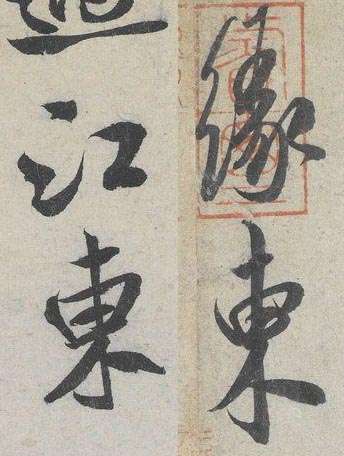 江東
緣東